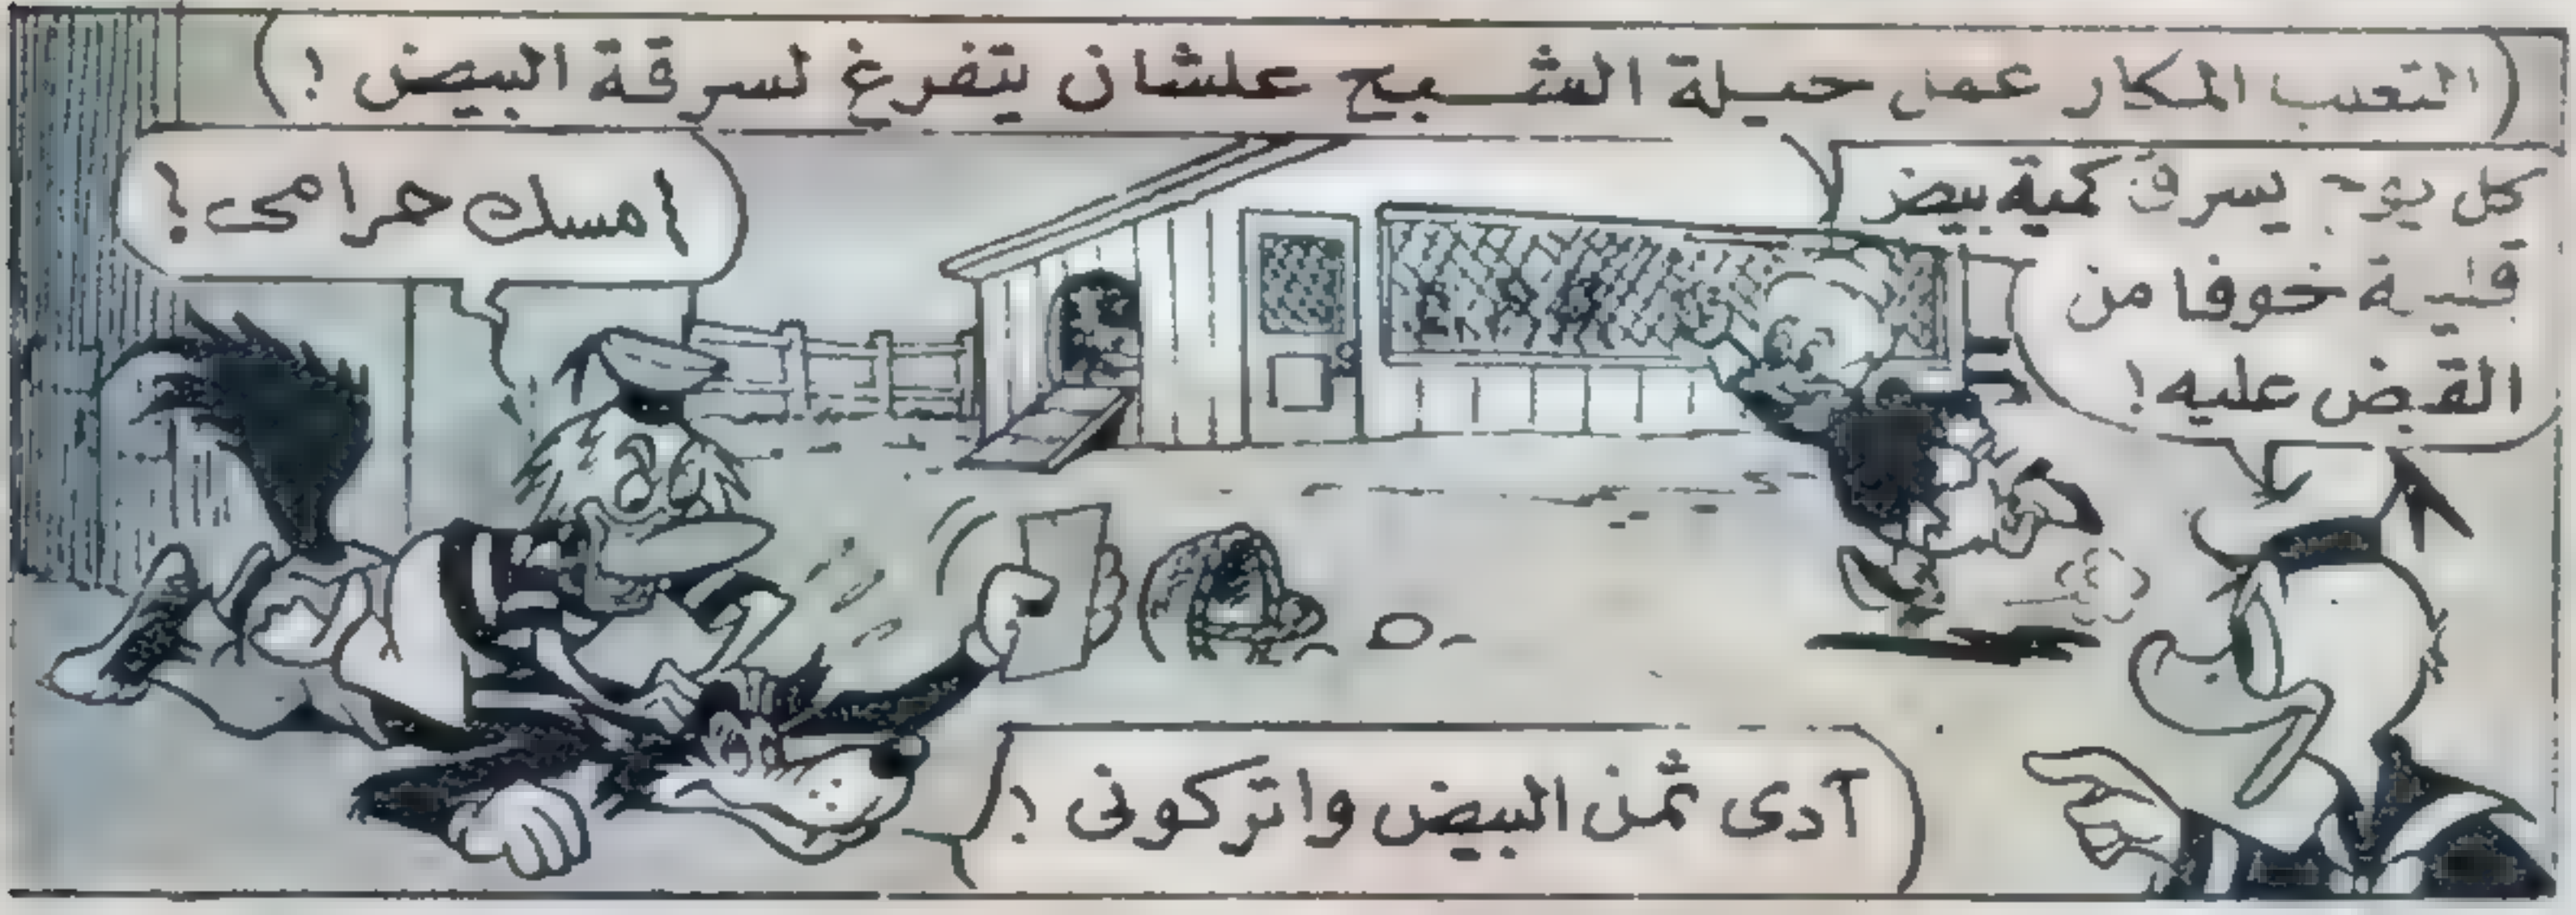 الثعلب المكار عمل حيلة الشبح علشان يتفرغ لسرقة البيض !
كل يوم يسرق كمية بيض
قليلة خوفا من
القبض عليه !
امسك حرامى !
آدى ثمن البيض واتركونى !